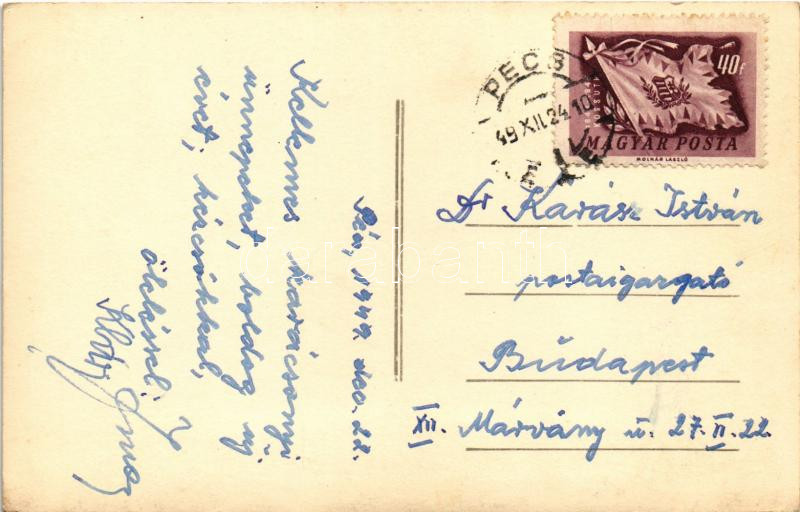 Kellemes karácsonyi
ünnepeket, boldog új
évet, kézcsókkal,
öleléssel:
Pécs, 1949. dec. 22.
PÉCS
49 XII. 24. 10
40f
KOSSUTH
MAGYAR POSTA
MOLNÁR LÁSZLÓ
Dr Karász István
postaigazgató
Budapest
XII. Márvány u. 27. II. 22.
darabanth